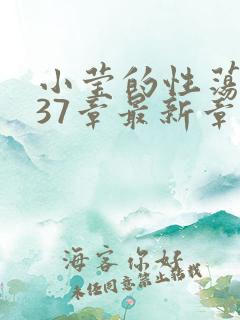 小莹的性荡
37章最新章
海客你好
未经同意禁止转载